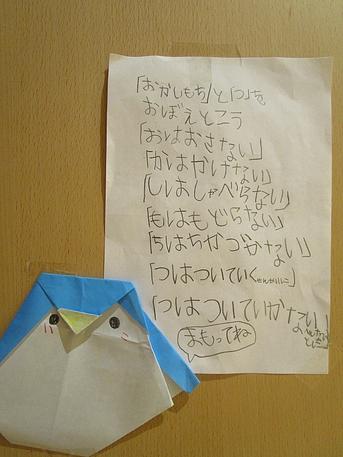 「おかしもち」と「つ」を
おぼえとこう
「おはおさない」
「かはかけない」
「しはしゃべらない」
「もはもどらない」
「ちはちかづかない」
「つはついていくせんせいに」
「つはついていかない」
まもってね